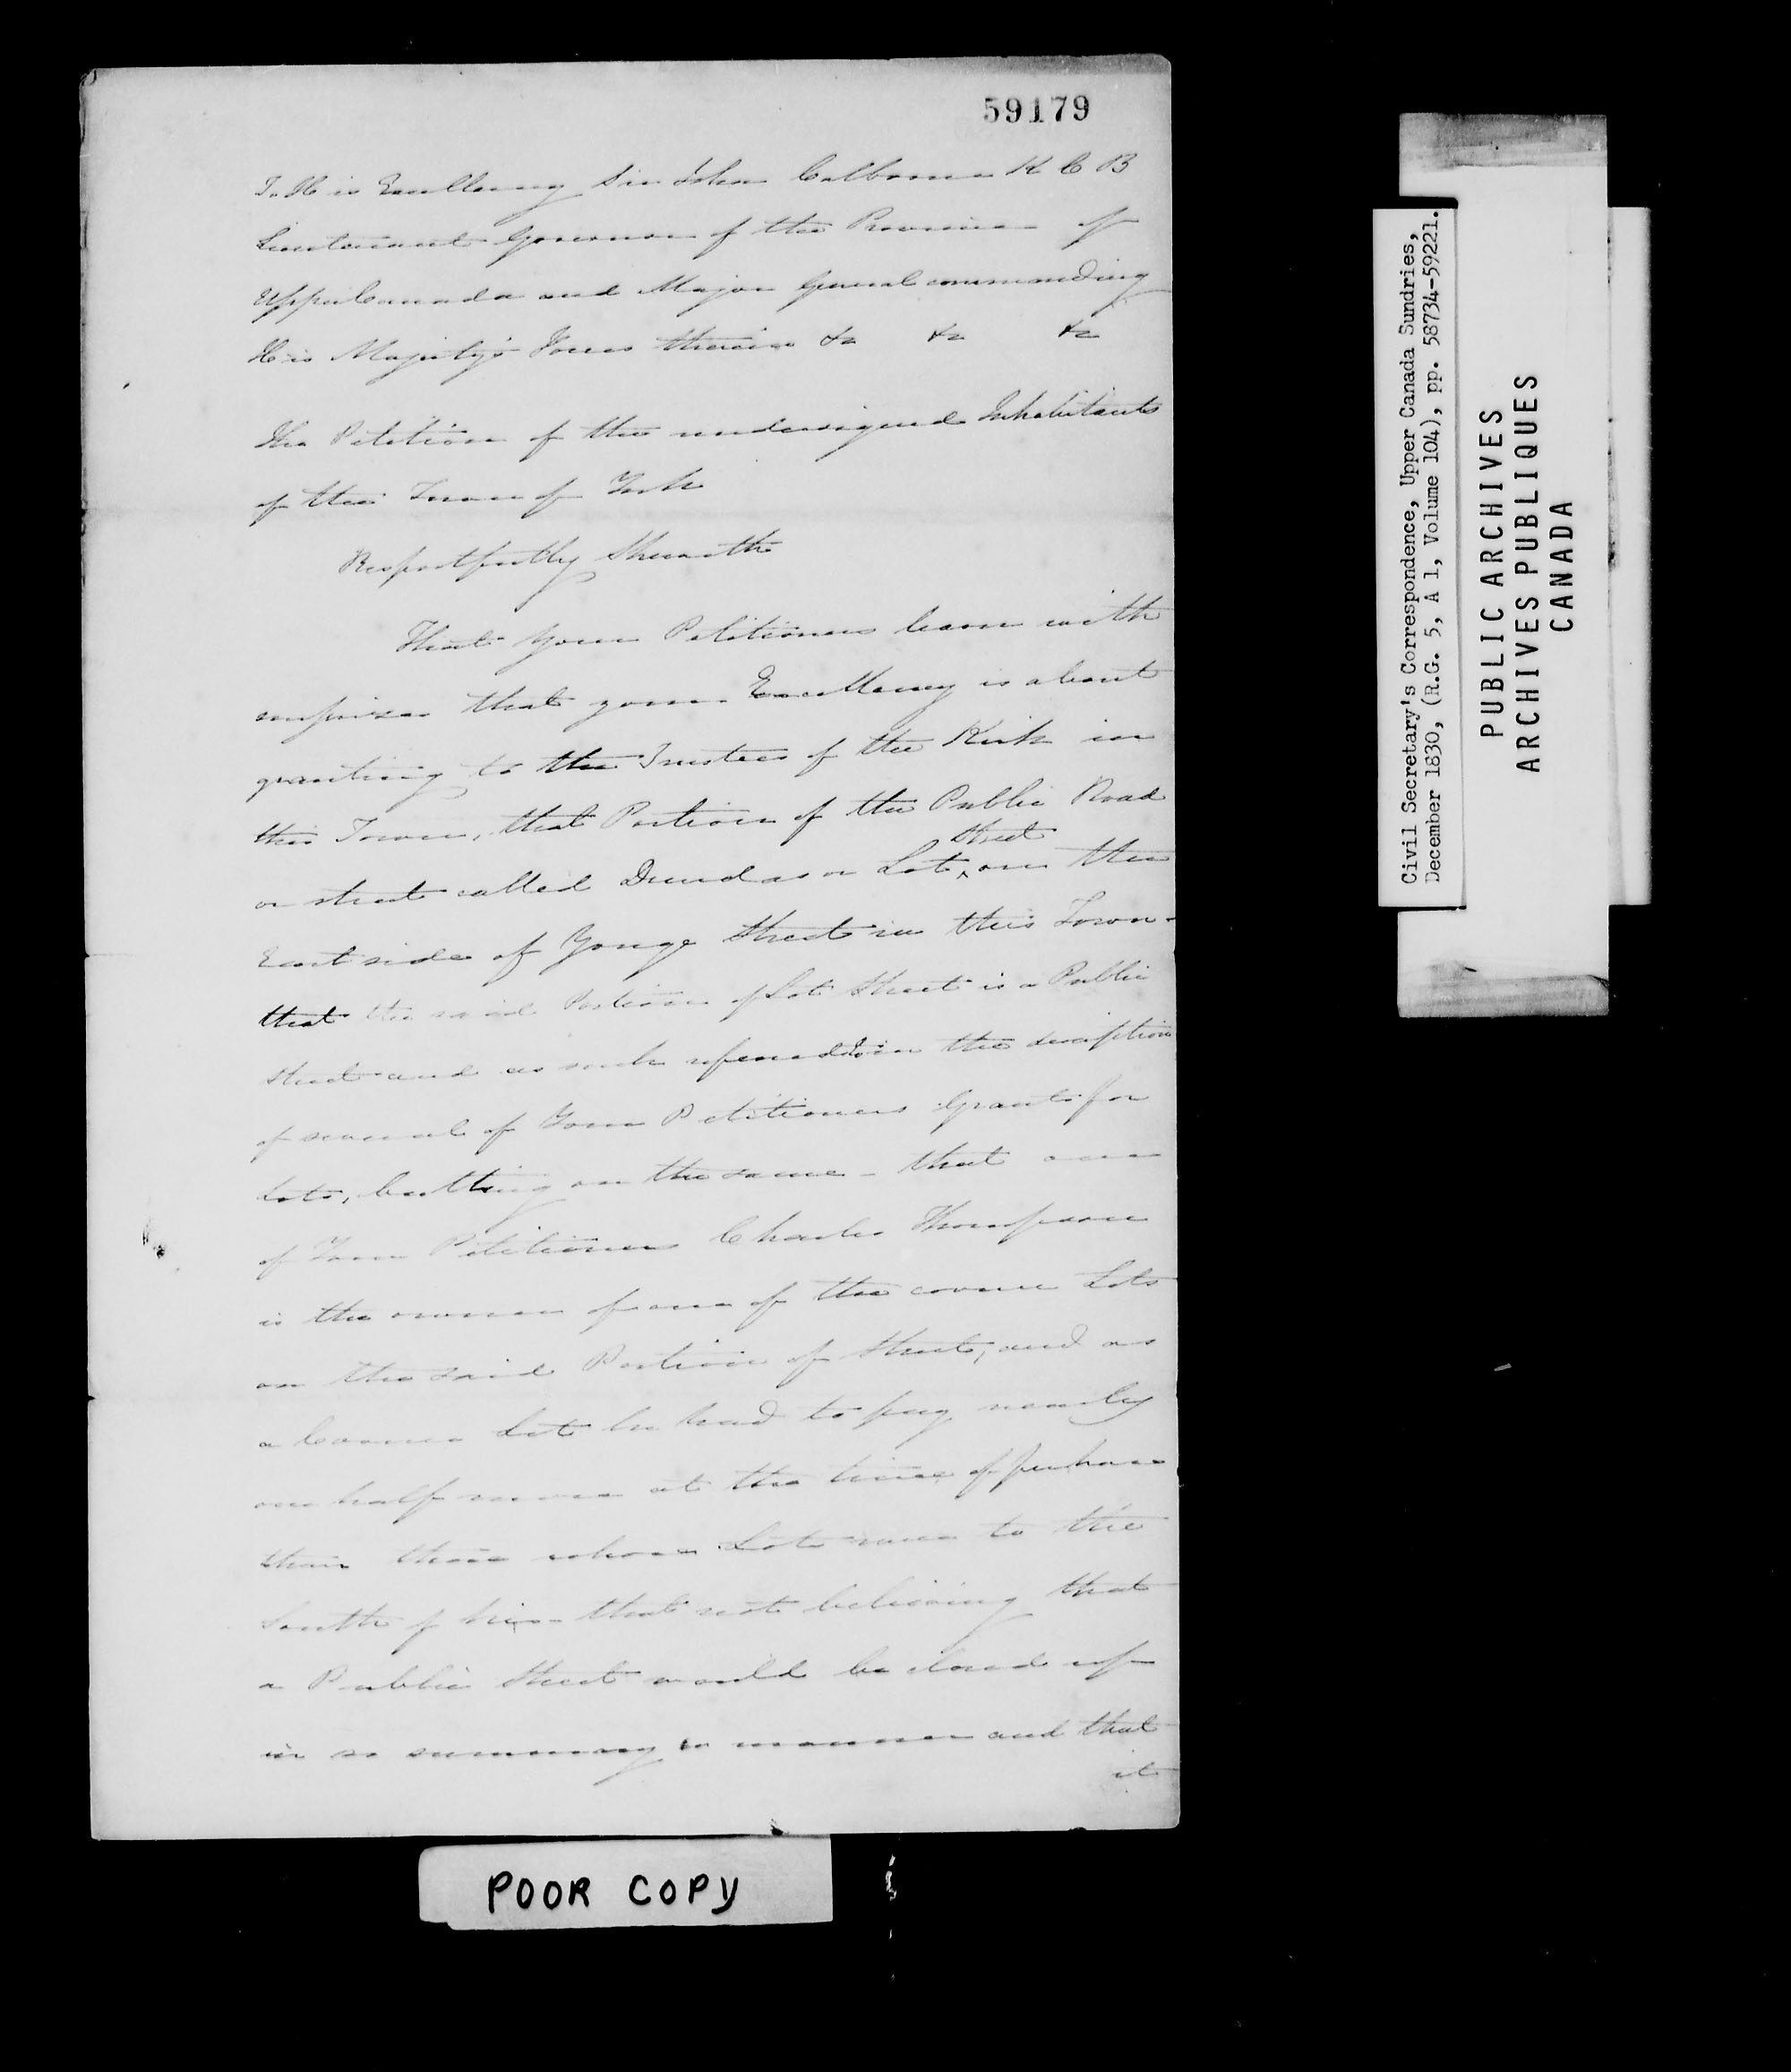 59179
To His Excellency Sir John Colborne K C B
Lieutenant Governor of the Province of
Upper Canada and Major General commanding
His Majesty's Forces therein &c &c &c
The Petition of the undersigned Inhabitants
of the Town of York
Respectfully Sheweth
That Your Petitioners learn with
surprise that your Excellency is about
granting to the Trustees of the Kirk in
this Town, that Portion of the Public Road
or street called Dundas or Lot Street on the
East side of Yonge Street in this Town -
that the said Portion of Lot Street is a Public
Street and as such referred to in the description
of several of Your Petitioners Grants for
Lots, butting on the same - that one
of Your Petitioners Charles Thompson
is the owner of one of the corner Lots
on the said Portion of Street, and as
a Corner Lot he had to pay nearly
one half more at the time of purchase
than those whose Lots were to the
South of his - that not believing that
a Public Street would be closed up
in so summary a manner and that
it
POOR COPY
Civil Secretary's Correspondence, Upper Canada Sundries,
December 1830, (R.G. 5, A 1, Volume 104), pp. 58734-59221.
PUBLIC ARCHIVES
ARCHIVES PUBLIQUES
CANADA